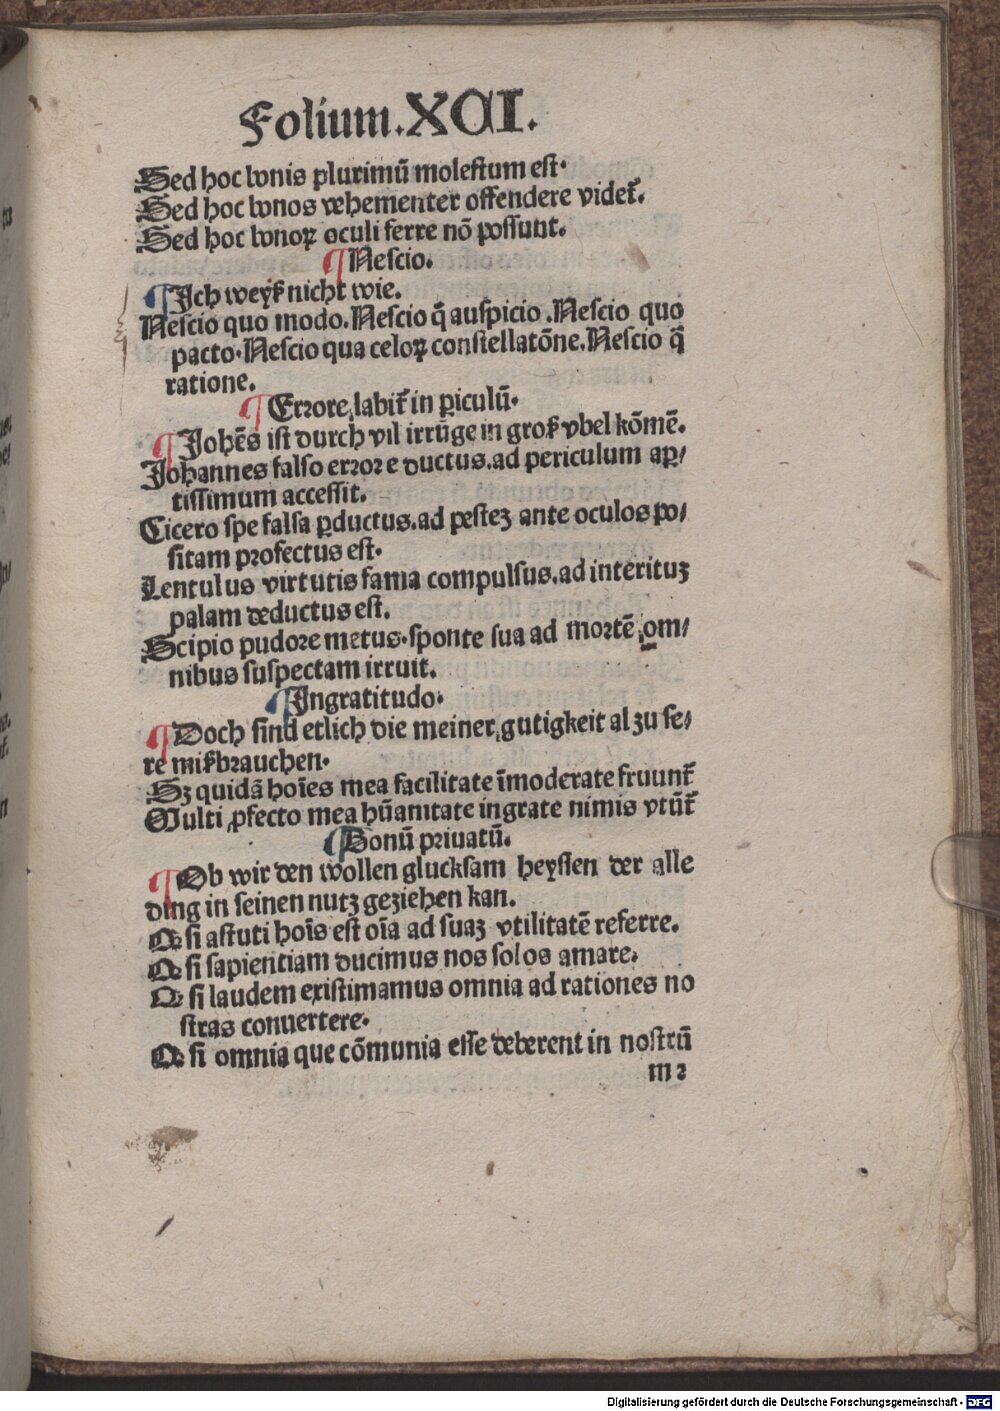 Folium.XCI.
Sed hoc bonis plurimū molestum est.
Sed hoc bonos vehementer offendere videt᷑.
Sed hoc bonoꝝ oculi ferre nō possunt.
¶Nescio.
¶Ich weyß nicht wie.
Nescio quo modo.Nescio q̄ auspicio.Nescio quo
pacto.Nescio qua celoꝝ constellatōne.Nescio q̄
ratione.
¶Errore labit᷑ in ꝑiculū.
¶Johēs ist durch vil irrūge in groß vbel kōmē.
Johannes falso errore ductus.ad periculum aꝑ/
tissimum accessit.
Cicero spe falsa ꝑductus.ad pestez ante oculos po/
sitam profectus est.
Lentulus virtutis fama compulsus.ad interituz
palam deductus est.
Scipio pudore metus.sponte sua ad mortē om/
nibus suspectam irruit.
¶Ingratitudo.
¶Doch sind etlich die meiner gutigkeit al zu se/
re mißbrauchen.
Sz quidā hoīes mea facilitate īmoderate fruunt᷑
Multi ꝓfecto mea hūanitate ingrate nimis vtūt᷑
¶Bonū priuatū.
¶Ob wir den wollen glucksam heyssen der alle
ding in seinen nutz geziehen kan.
Q si astuti hoīs est oīa ad suaz vtilitatē referre.
Q si sapientiam ducimus nos solos amare.
Q si laudem existimamus omnia ad rationes no
stras conuertere.
Q si omnia que cōmunia esse deberent in nostrū
m 2
Digitalisierung gefördert durch die Deutsche Forschungsgemeinschaft - DFG